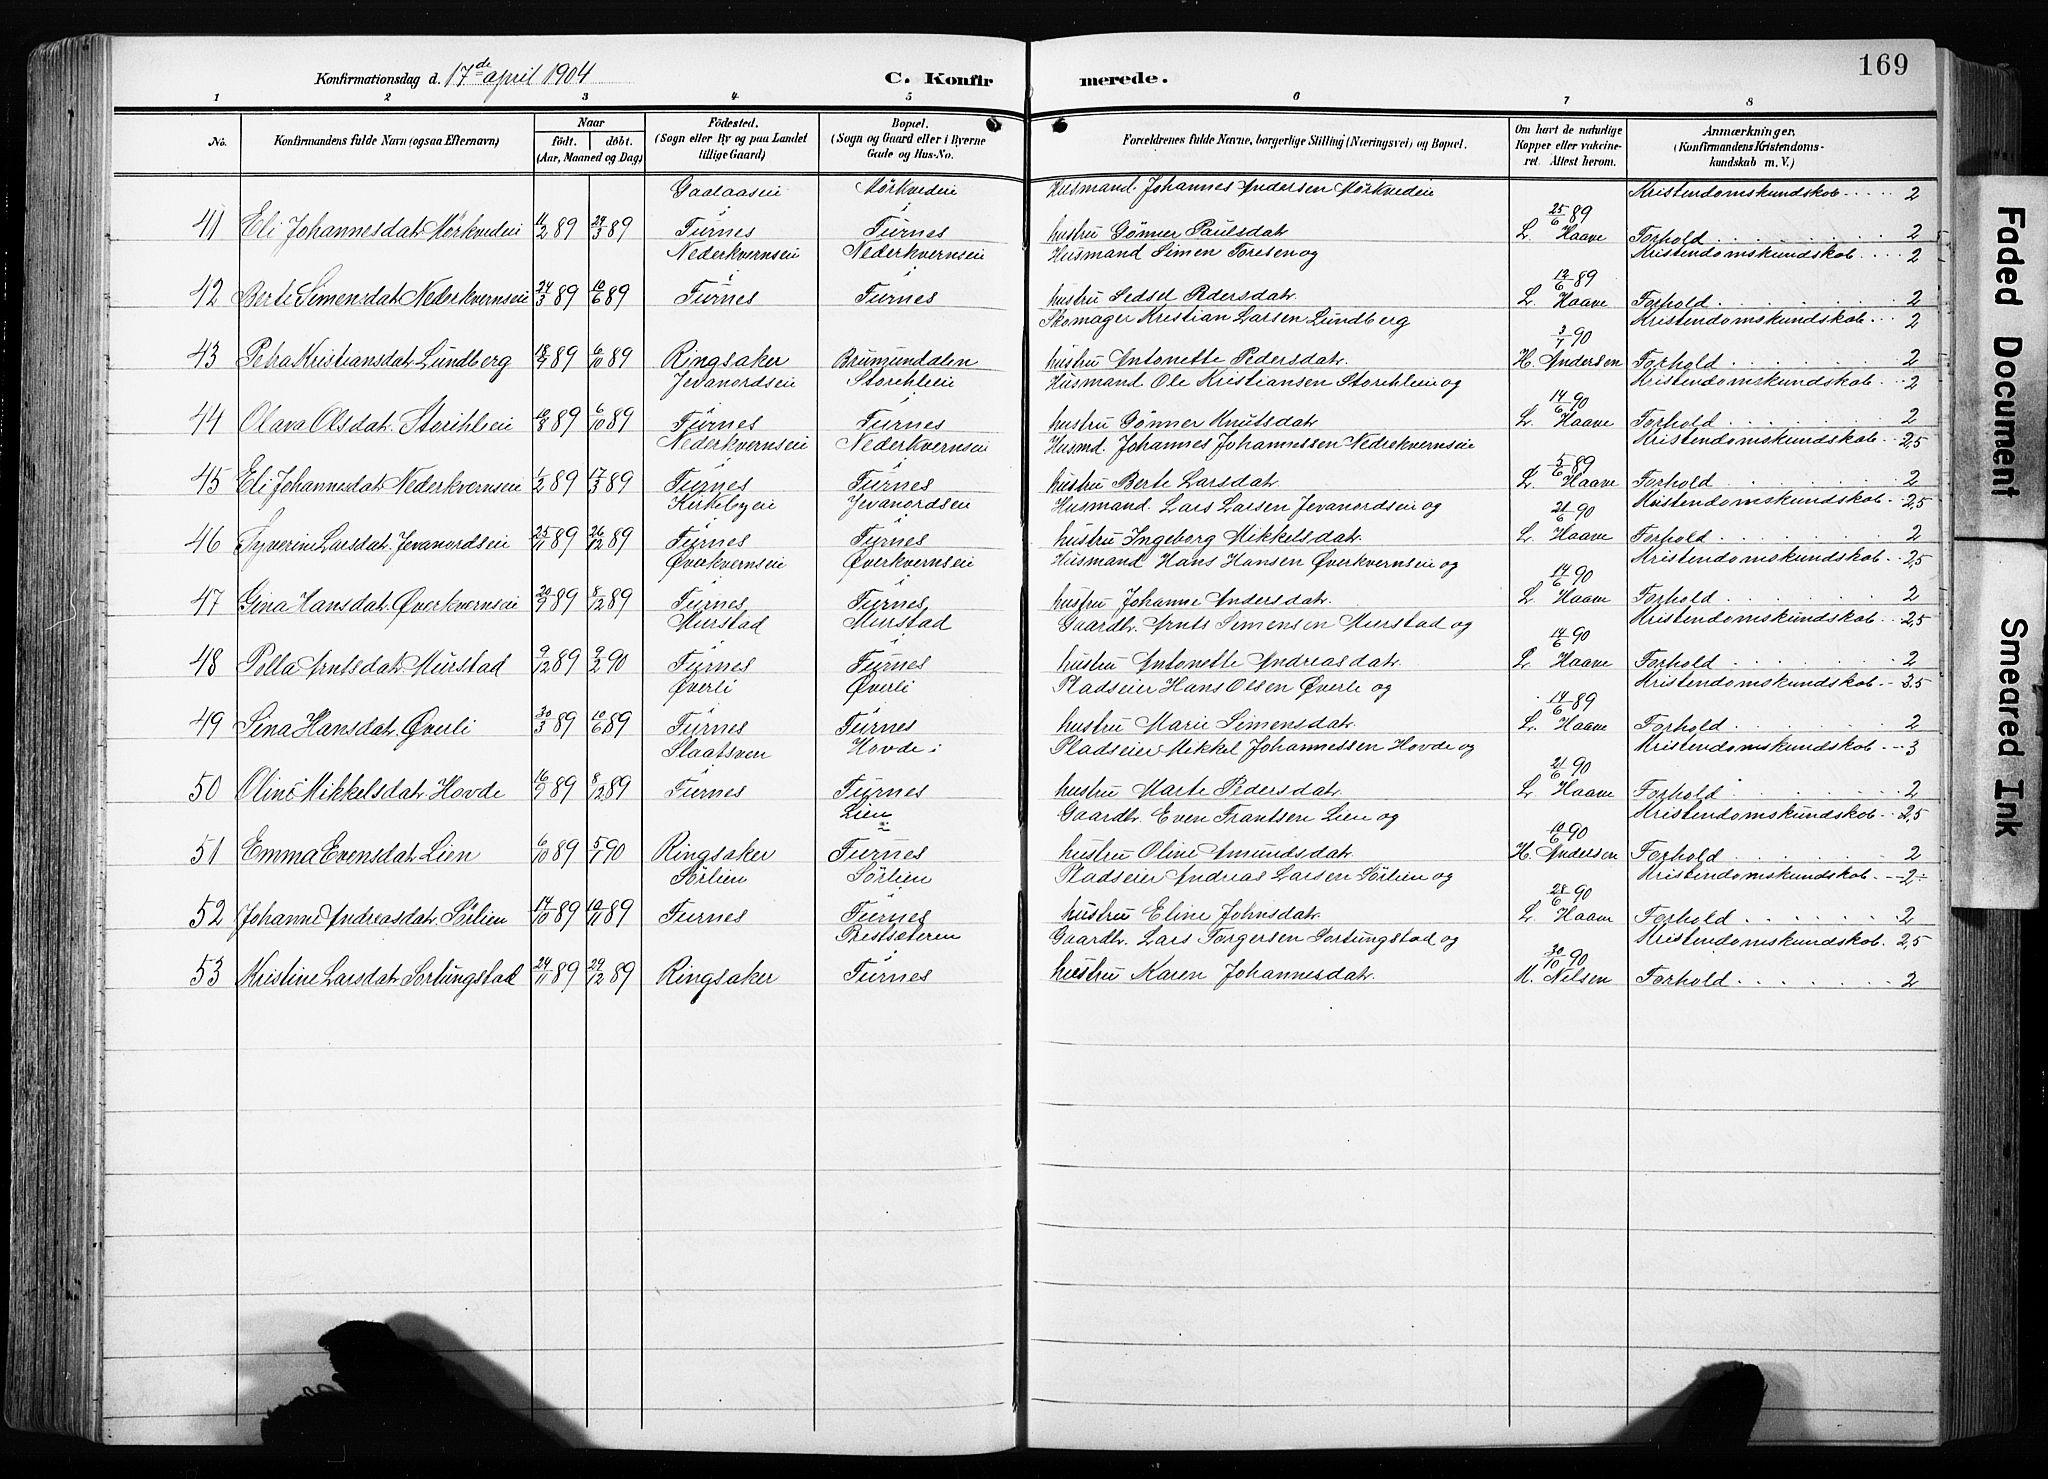 Konfirmationsdag d. 17de april 1904 C. Konfirmerede. 169
1 2 3 4 5 6 7 8
No. Konfirmandens fulde Navn (ogsaa Efternavn) Naar født. døbt. (Aar, Maaned og Dag) Fødested. (Sogn eller By og paa Landet tillige Gaard) Bopæl. (Sogn og Gaard eller i Byerne Gade og Hus-No. Forældrenes fulde Navne, borgerlige Stilling (Næringsvei) og Bopæl. Om havt de naturlige Kopper eller vaccineret. Attest herom. Anmærkninger, (Konfirmandens Kristendomskundskab m. V.)
Gaalaaseie Mörkvedeie Husmand Johannes Andersen Mörkvedeie Kristendomskundskab 2
41 Eli Johannesdatr Mörkvedeie 11/2 89 24/3 89 i Furnes i Furnes hustru Gönner Paulsdatr 25/6 89 L. Haave Forhold 2
Nederkvernseie Nederkvernseie Husmand Simen Toresen og Kristendomskundskab 2
42 Berte Simensdatr Nederkvernseie 24/3 89 10/6 89 i Furnes i Furnes hustru Sedsel Pedersdatr. 12/6 89 L. Haave Forhold 2
Skomager Kristian Larsen Lundberg Kristendomskundskab 2
43 Petra Kristiansdatr Lundberg 18/9 89 6/10 89 Ringsaker Brumunddalen hustru Antonette Pedersdatr. 3/1 90 H. Andersen Forhold 2
Jevanordseie Storihleeie Husmand Ole Kristiansen Storihleeie og Kristendomskundskab 2
44 Olava Olsdatr. Storihleeie 89 6/10 89 i Furnes i Furnes hustru Gönner Knutsdatr 14/6 90 L. Haave Forhold 2
Nederkvernseie Nederkvernseie Husmd. Johannes Johannessen Nedrekvernseie Kristendomskundskab 2,5
45 Eli Johannesdatr Nederkvernseie 1/2 89 17/3 89 i Furnes i Furnes hustru Berte Larsdatr. 5/6 89 L. Haave Forhold 2
Kirkebyeie Jevanordseie Husmand. Lars Larsen Jevanordseie og Kristendomskundskab 2,5
46 Tyverine Larsdatr. Jevanordseie 25/11 89 26/12 89 i Furnes i Furnes hustru Ingeborg Mikkelsdatr. 21/6 90 L. Haave Forhold 2
Øverkvernseie Øverkvernseie Husmand Hans Hansen Øverkvernseie og Kristendomskundskab 2,5
47 Gina Hansdatr. Øverkvernseie 20/9 89 8/12 89 i Furnes i Furnes hustru Johanne Andersdatr. 14/6 90 L. Haave Forhold 2
Murstad Murstad Gaardbr. Arnts Simensen Murstad og Kristendomskundskab 2,5
48 Polla Arntsdatr. Murstad 9/12 89 9/2 90 i Furnes i Furnes hustru Antonette Andreasdatr. 14/6 90 L. Haave Forhold 2
Øverli Øverli Pladseier Hans Olsen Øverli og Kristendomskundskab 3,5
49 Sena Hansdatr. Øverli 30/3 89 10/6 89 i Furnes i Furnes hustru Marie Simensdatr. 14/6 89 L. Haave Forhold 2
Slaatsven Hovde i Pladseier Mikkel Johannessen Hovde og Kristendomskundskab 3
50 Oline Mikkelsdatr. Hovde 16/9 89 8/12 89 i Furnes Furnes hustru Marte Pedersdatr. 21/6 90 L. Haave Forhold 2
Lien Gaardbr. Even Frantsen Lien og Kristendomskundskab 2,5
51 Emma Evensdatr. Lien 6/10 89 5/1 90 Ringsaker i Furnes hustru Oline Amundsdatr. 10/6 90 H. Andersen Forhold 2
Sörlien Sörlien Pladseier Andreas Larsen Sörlien og Kristendomskundskab 2÷
52 Johanne Andreasdatr. Sörlien 14/10 89 10/11 89 i Furnes i Furnes hustru Eline Johnsdatr. 28/6 90 L. Haave Forhold 2
Prestsæteren Gaardbr. Lars Torgersen Sortungstad og Kristendomskundskab. 2,5
53 Kristine Larsdatr Sortungstad 24/11 89 29/12 89 Ringsaker i Furnes hustru Karen Johannesdatr. 30/10 90 M. Nilsen Forhold 2
Faded Document
Smeared Ink